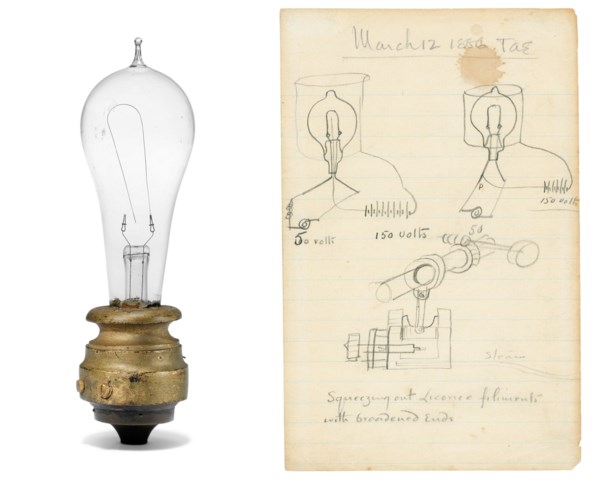 March 12 188 TAE
50 volts
150 volts
50
150 volts
Steam
Squeezing out filiments
with broadened Ends